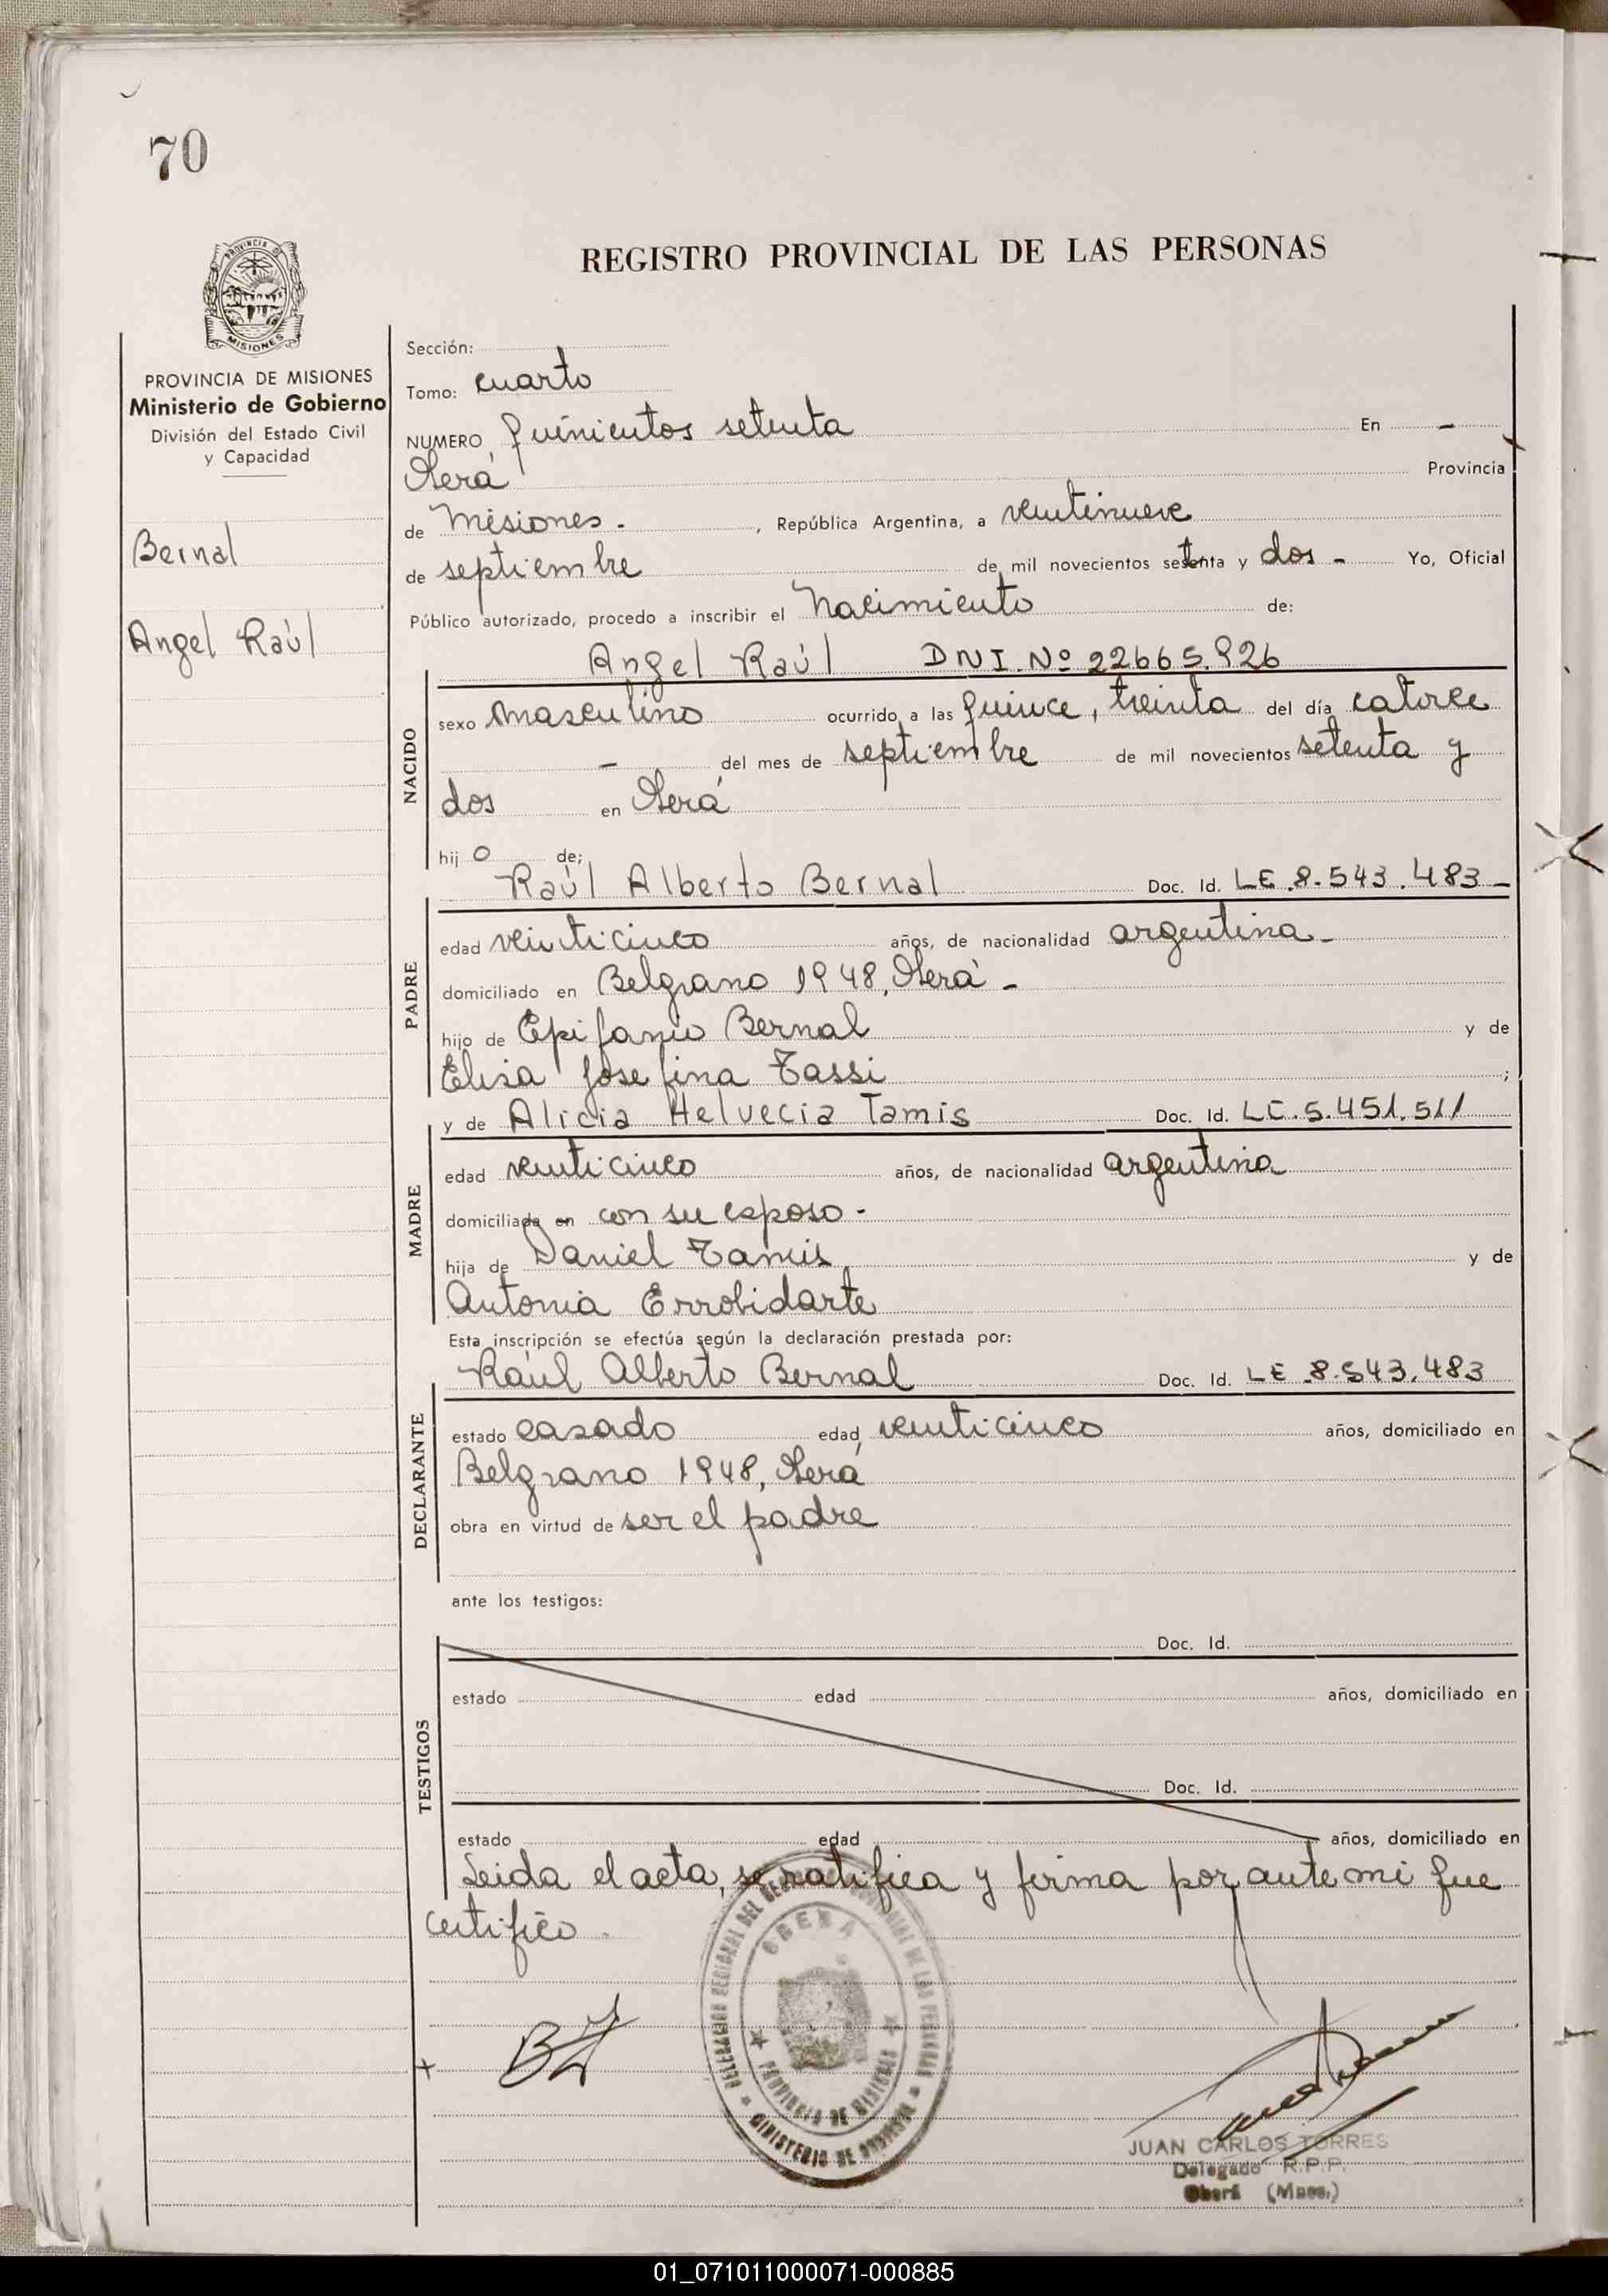 70
PROVINCIA DE
MISIONES
REGISTRO PROVINCIAL DE LAS PERSONAS
PROVINCIA DE MISIONES
Ministerio de Gobierno
División del Estado Civil
y Capacidad
Bernal
Angel Raúl
Sección:
Tomo: cuarto
NUMERO quinientos setenta En -
Oberá Provincia
de Misiones. , República Argentina, a veintinueve
de septiembre de mil novecientos setenta y dos - Yo, Oficial
Público autorizado, procedo a inscribir el Nacimiento de:
Angel Raúl DNI. Nº 22665.926
NACIDO
sexo masculino ocurrido a las quince, treinta del día catorce
- del mes de septiembre de mil novecientos setenta y
dos en Oberá
hij o de;
Raúl Alberto Bernal Doc. Id. LE.8.543.483-
PADRE
edad veinticinco años, de nacionalidad argentina-
domiciliado en Belgrano 1948, Oberá -
hijo de Epifanio Bernal y de
Elisa Josefina Tassi ;
y de Alicia Helvecia Tamis Doc. Id. LC.5.451.511
MADRE
edad veinticinco años, de nacionalidad argentina
domiciliada en con su esposo -
hija de Daniel Tamis y de
Antonia Errobidarte
Esta inscripción se efectúa según la declaración prestada por:
Raúl Alberto Bernal Doc. Id. LE.8.543.483
DECLARANTE
estado casado edad veinticinco años, domiciliado en
Belgrano 1948, Oberá
obra en virtud de ser el padre
ante los testigos:
TESTIGOS
Doc. Id.
estado edad años, domiciliado en
Doc. Id.
estado edad años, domiciliado en
Leida el acta, se ratifica y firma por ante mi que
certifico.
OBERA
PROVINCIA DE MISIONES
MINISTERIO DE GOBIERNO
JUAN CARLOS TORRES
Delegado R.P.P.
Oberá (Mnes.)
01_071011000071-000885